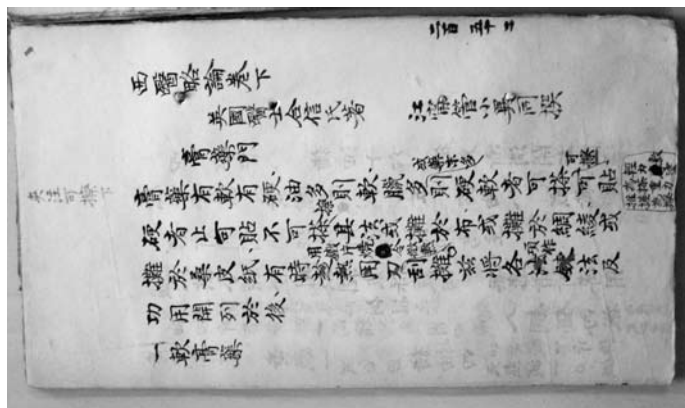 二百五十三
西醫畧論卷下
英國醫士合信氏著 江寧管小異同撰
膏藥門
或藥末多
膏藥有軟有硬、油多則軟臘多則硬軟者可搽可貼
硬者止可貼不可搽其法或攤於布或攤於綢綾或
攤於桑皮紙、有時趁熱用刀刮攤茲將各法鍊法及
功用開列於後、
一軟膏藥